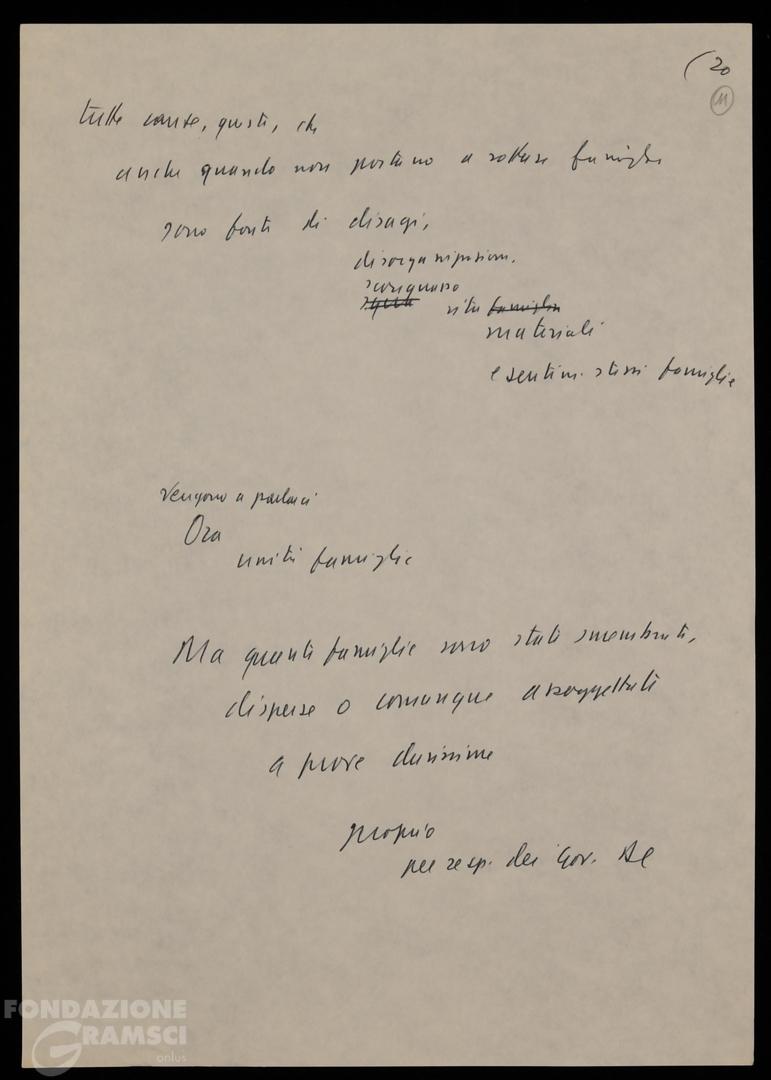 (20
11
tutte cause, queste, che
anche quando non portano a rotture famiglie
sono fonti di disagi,
disorganizzazioni,
vita famiglia
materiali
e sentim. stessi famiglie
Vengono a parlarci
Ora
unità famiglie
Ma quante famiglie sono state smembrate,
disperse o comunque assoggettate
a prove durissime
proprio
per resp. dei Gov. DC
FONDAZIONE
GRAMSCI
onlus